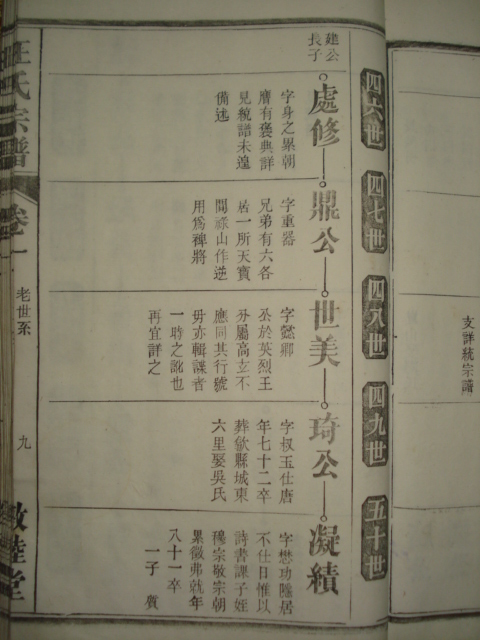 支詳統宗譜
四六世
四七世
四八世
四九世
五十世
建公
長子
處修
字身之累朝
膺有褒典詳
見統譜未遑
備述
鼎公
字重器
兄弟有六各
居一所天寶
間祿山作逆
用爲裨將
世美
字懿卿
公於英烈王
分屬高玄不
應同其行號
毋亦輯譜者
一時之訛也
再宜詳之
琦公
字叔玉仕唐
年七十二卒
葬歙縣城東
六里娶吳氏
凝績
字懋功隱居
不仕日惟以
詩書課子姪
穆宗敬宗朝
累徵弗就年
八十一卒
一子 質
汪氏宗譜
卷一
老世系
九
敦睦堂